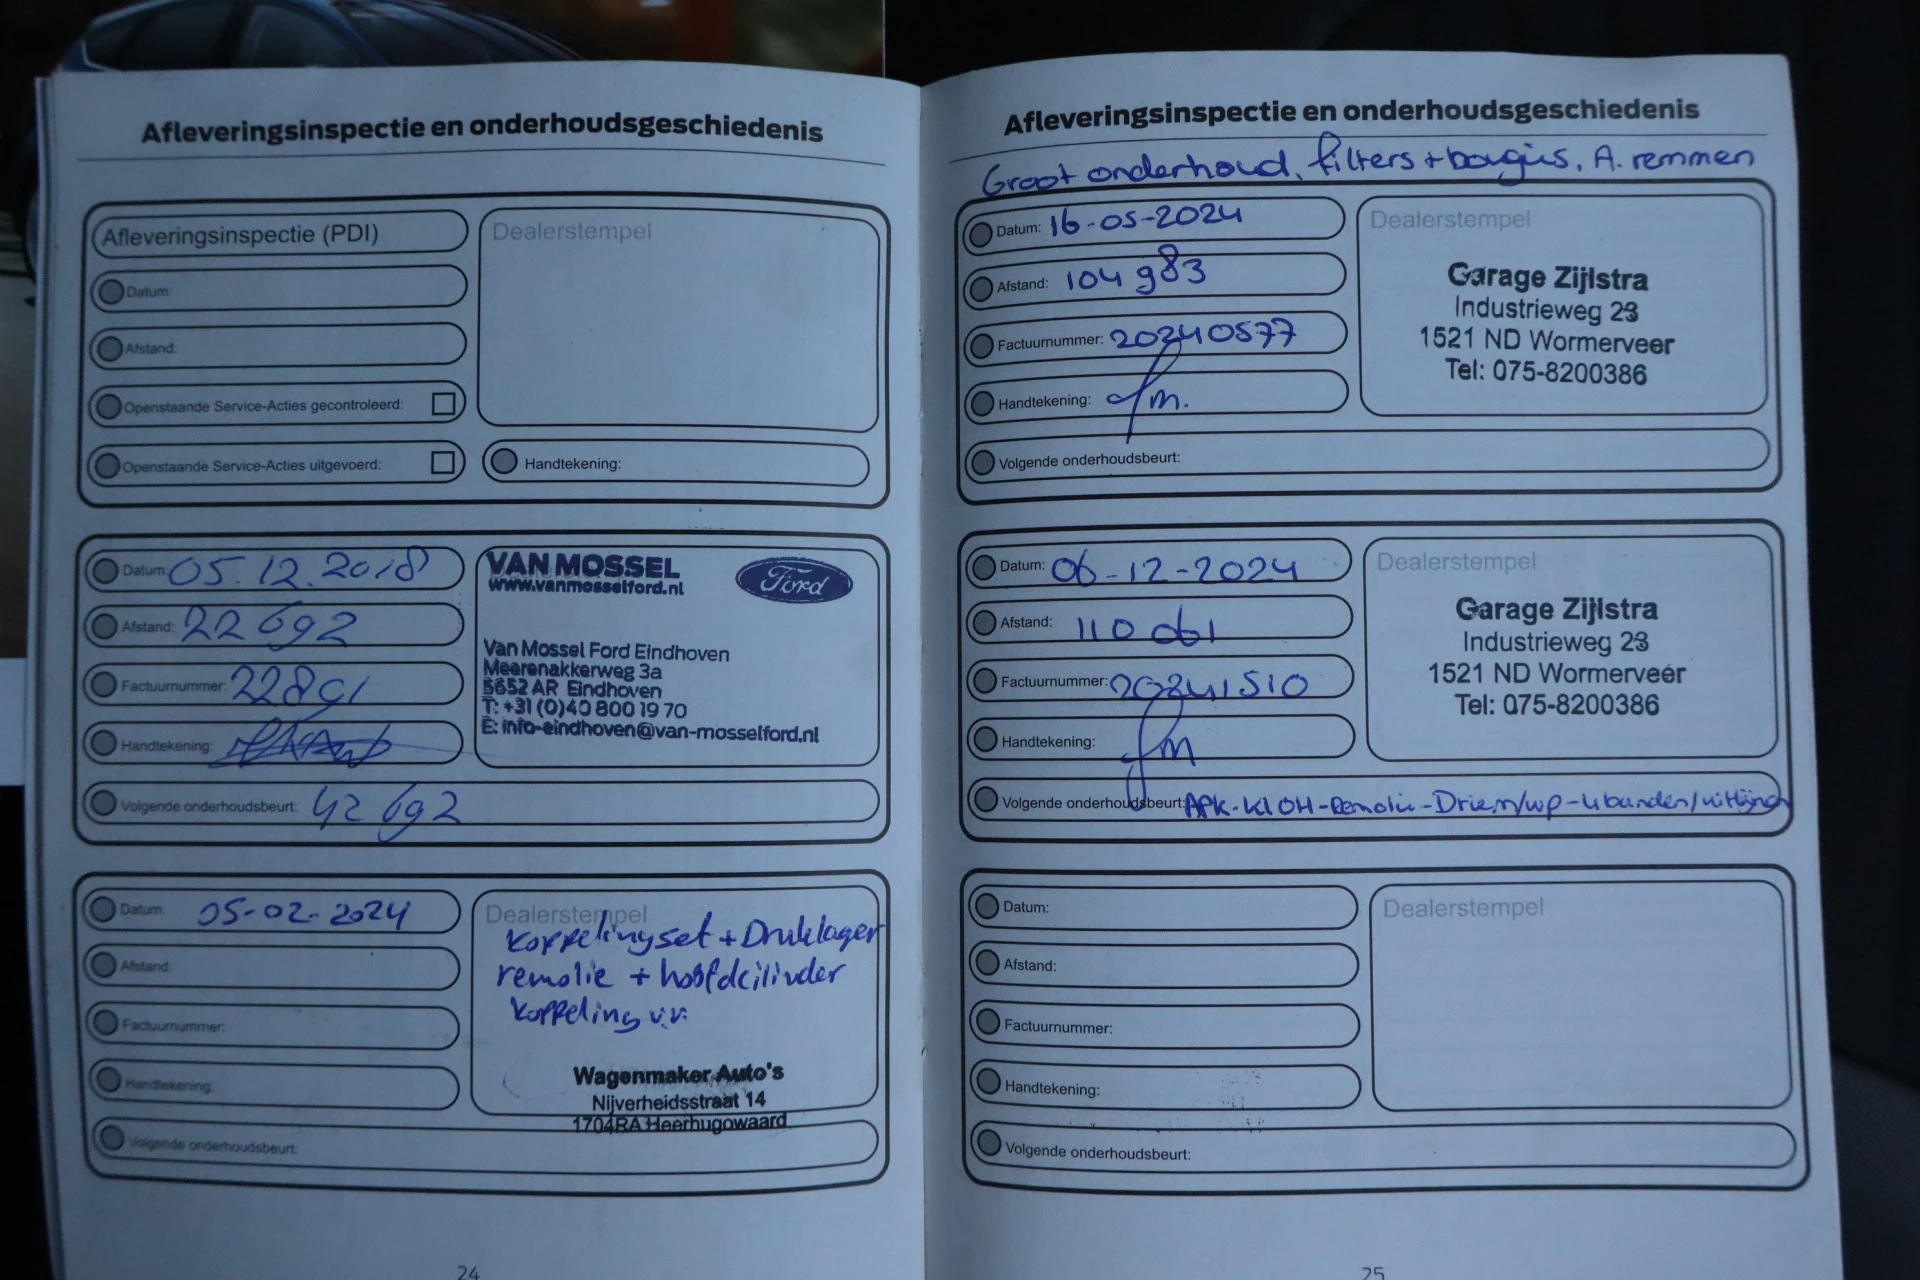 Afleveringsinspectie en onderhoudsgeschiedenis
Afleveringsinspectie (PDI)
Datum:
Afstand:
Openstaande Service-Acties gecontroleerd:
Openstaande Service-Acties uitgevoerd:
Dealerstempel
Handtekening:
Datum: 05.12.2018
Afstand: 22692
Factuurnummer: 22891
Handtekening:
Volgende onderhoudsbeurt: 42692
VAN MOSSEL
www.vanmosselford.nl
Ford
Van Mossel Ford Eindhoven
Meerenakkerweg 3a
5652 AR Eindhoven
T: +31 (0)40 800 19 70
E: info-eindhoven@van-mosselford.nl
Datum: 05-02-2024
Afstand:
Factuurnummer:
Handtekening:
Volgende onderhoudsbeurt:
Dealerstempel
Koppelingset + Druklager
remolie + hoofdcilinder
Koppeling v.v.
Wagenmaker Auto's
Nijverheidsstraat 14
1704RA Heerhugowaard
24
Afleveringsinspectie en onderhoudsgeschiedenis
Groot onderhoud, filters + bougies, A. remmen
Datum: 16-05-2024
Afstand: 104983
Factuurnummer: 20240577
Handtekening:
Volgende onderhoudsbeurt:
Dealerstempel
Garage Zijlstra
Industrieweg 23
1521 ND Wormerveer
Tel: 075-8200386
Datum: 06-12-2024
Afstand: 110061
Factuurnummer: 20241510
Handtekening:
Volgende onderhoudsbeurt: APK-Kl OH-Remolie-Driem/wp-4banden/uitlijnen
Dealerstempel
Garage Zijlstra
Industrieweg 23
1521 ND Wormerveer
Tel: 075-8200386
Datum:
Afstand:
Factuurnummer:
Handtekening:
Volgende onderhoudsbeurt:
Dealerstempel
25